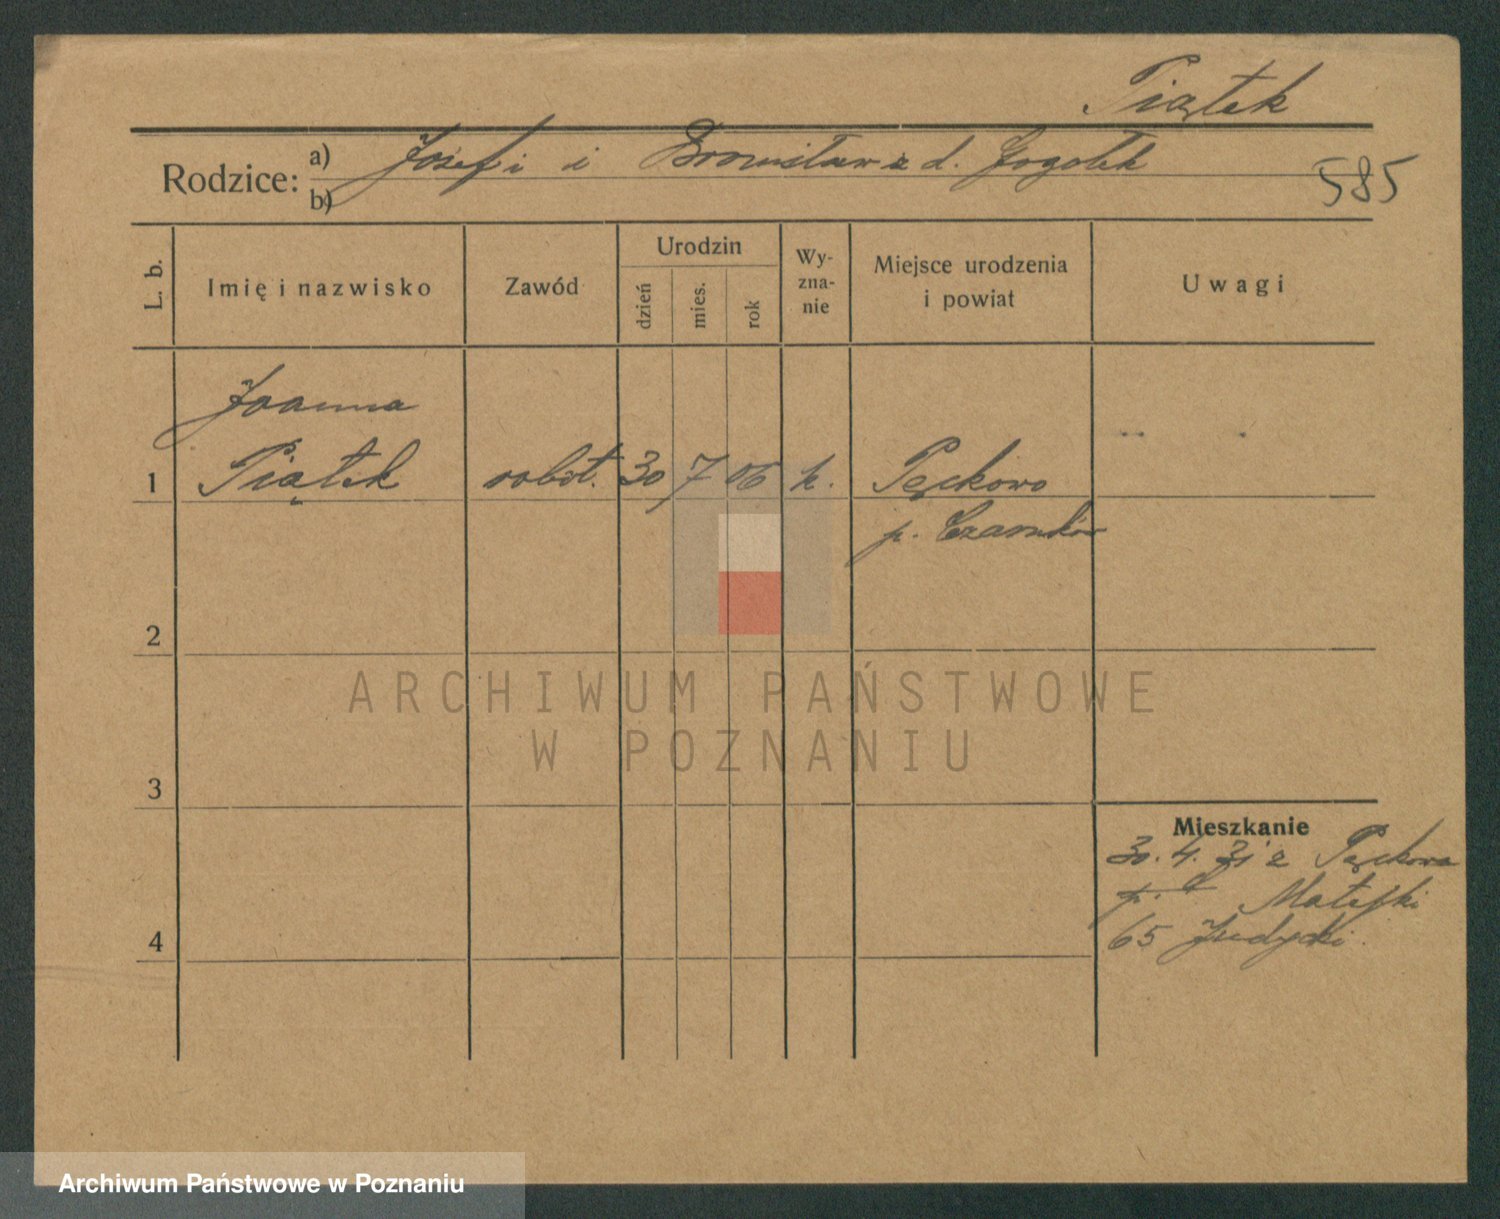 Piątek
Rodzice: a) Józef i Bronisława z d. Gogołek
b)
585
L. b. Imię i nazwisko Zawód Urodzin dzień mies. rok Wyznanie Miejsce urodzenia i powiat Uwagi
Joanna
1 Piątek robot. 30 7 06 k. Pęckowo
p. Czarnków
2
3
4
Mieszkanie
30. 4. 31 z Pęckowa
p. C Matejki
65
ARCHIWUM PAŃSTWOWE
W POZNANIU
Archiwum Państwowe w Poznaniu